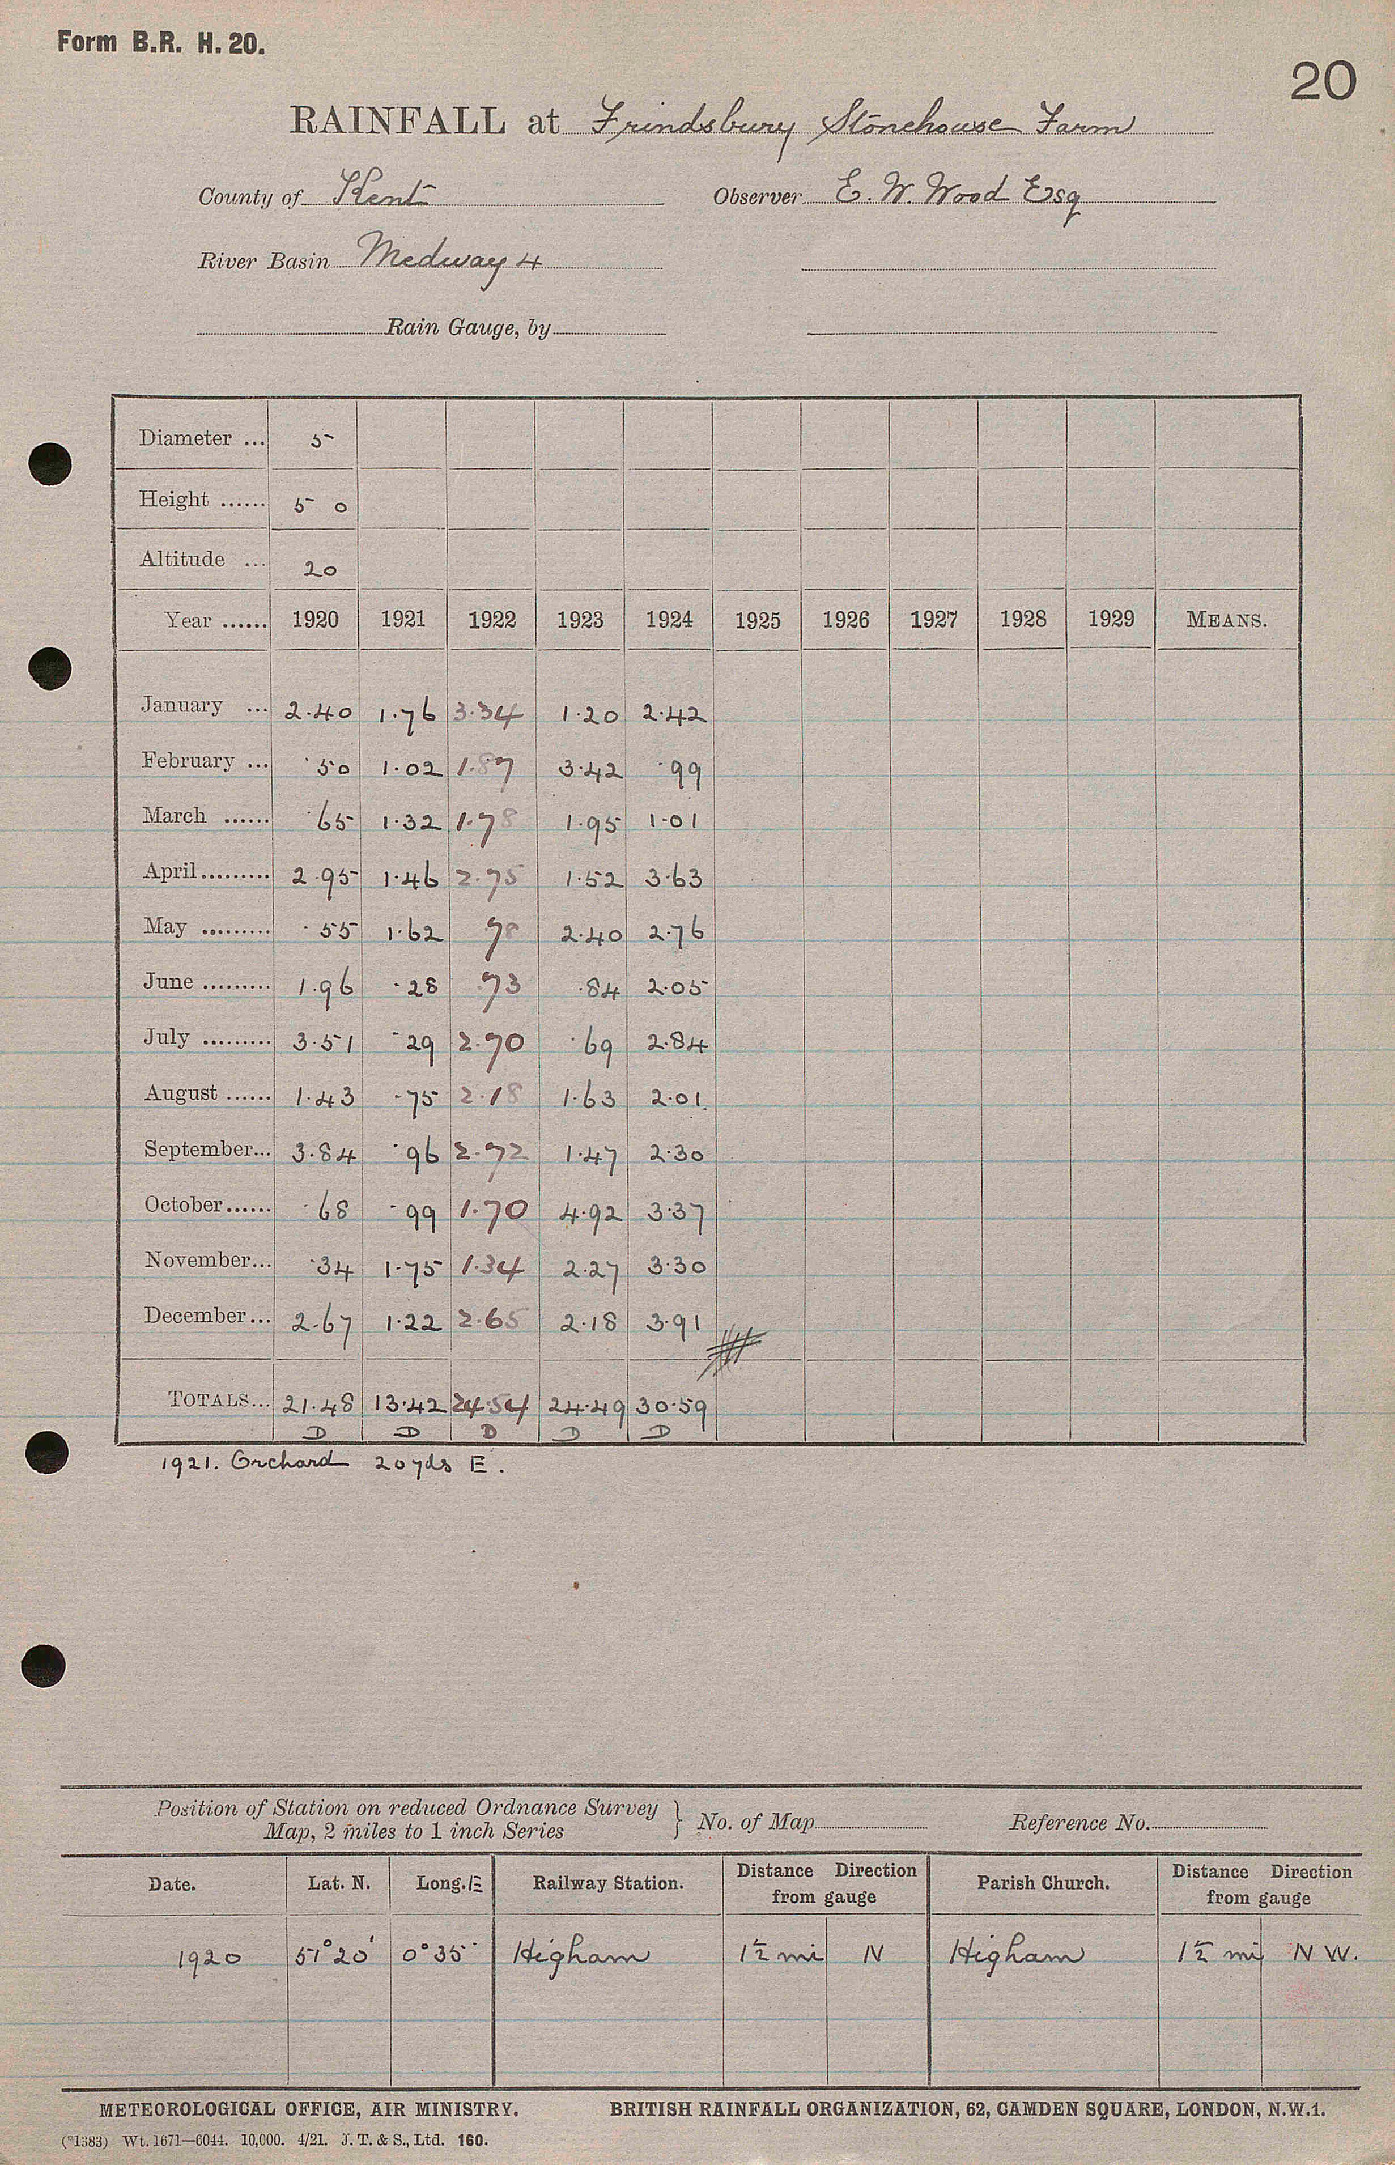 Form B.R. H. 20.
20
RAINFALL at Frindsbury Stonehouse Farm
County of Kent Observer E. W. Wood Esq
River Basin Medway 4
Rain Gauge, by
Diameter ... 5
Height ...... 5 0
Altitude ... 20
Year ...... 1920 1921 1922 1923 1924 1925 1926 1927 1928 1929 MEANS.
January ... 2.40 1.76 3.34 1.20 2.42
February ... .50 1.02 1.87 3.42 .99
March ...... .65 1.32 1.78 1.95 1.01
April......... 2.95 1.46 2.75 1.52 3.63
May ......... .55 1.62 78 2.40 2.76
June ......... 1.96 .28 .73 .84 2.05
July ......... 3.51 .29 2.70 .69 2.84
August ...... 1.43 .75 2.18 1.63 2.01
September... 3.84 .96 2.72 1.47 2.30
October...... .68 .99 1.70 4.92 3.37
November... .34 1.75 1.34 2.27 3.30
December... 2.67 1.22 2.65 2.18 3.91
TOTALS... 21.48 13.42 24.54 24.49 30.59
D D D D D
1921. Orchard 20 yds E.
Position of Station on reduced Ordnance Survey
Map, 2 miles to 1 inch Series } No. of Map Reference No.
Date. Lat. N. Long. E Railway Station. Distance Direction from gauge Parish Church. Distance Direction from gauge
1920 51°20' 0°35' Higham 1½ mi N Higham 1½ mi N W.
METEOROLOGICAL OFFICE, AIR MINISTRY. BRITISH RAINFALL ORGANIZATION, 62, CAMDEN SQUARE, LONDON, N.W.1.
(*1383) Wt. 1671—6044. 10,000. 4/21. J. T. & S., Ltd. 160.